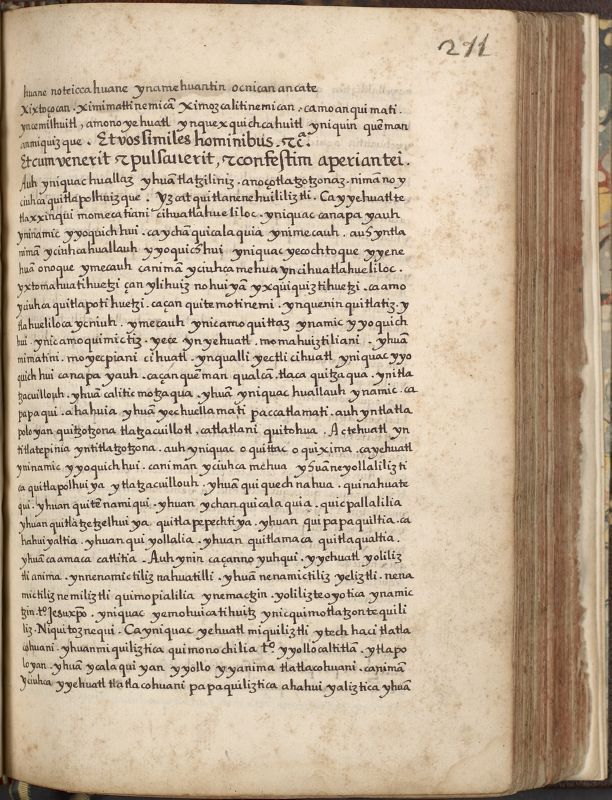 211
huane noteicca huane ynamehuantin ocnican ancate
xixtoçocan. ximimattinemicã ximozcalitinemican. camo anqui mati.
yncemilhuitl, amono yehuatl ynquexquichcahuitl yniquin quẽman
anmiquizque. Et vos similes hominibus. &cª.
Et cum venerit & pulsauerit, & confestim aperiant ei.
Auh yniquac huallaz yhuã tlatziliniz. anoço tlatzotzonaz. niman no y
ciuhca quitlapolhuizque. Yzcatqui tlanenehuililiztli. Ca yyehuatl te
tlaxxinqui momecatiani cihuatlahueliloc. yniquac canapa yauh
yninamic yyoquichhui. caychãquicalaquia ynimecauh. auh yntla
nimã yciuhca huallauh yyoquichhui yniquac yecochtoque yyene
huã onoque ymecauh canimã yciuhca mehua yncihuatlahueliloc.
yxtomahuatihuetzi çan ylihuiz nohuiyã yxquiquiztihuetzi. caamo
yciuhca quitlapotihuetzi. caçan quitemotinemi. ynquenin quitlatiz. y
tlahueliloca ycniuh. ymecauh ynicamo quittaz ynamic yyoquich
hui. ynicamo quimictiz. yece ynyehuatl. momahuiztiliani. yhuã
mimatini. moyecpiani cihuatl. ynqualli yectli cihuatl yniquac yyo
quichhui canapa yauh. caçan quẽman qualcã. tlaca quitzaqua. ynitla
tzacuillouh. yhuã calitic motzaqua. yhuã yniquac huallauh ynamic. ca
papaqui. ahahuia yhuã yechuellamati paccatlamati. auh yntlatla
poloyan quitzotzona tlatzacuillotl. catlatlani quitohua. Ac tehuatl yn
titlatepinia yntitlatzotzona. auh yniquac oquittac oquixima. cayehuatl
yninamic yyoquichhui. caniman yciuhca mehua yhuãneyollaliliz ti
ca quitlapolhuiya ytlatzacuillouh. yhuã quiquechnahua. quinahuate
qui. yhuan quitẽnamiqui. yhuan ychan quicalaquia. quicpallalilia
yhuan quitlatzetzelhuiya. quitlapepechtiya. yhuan quipapaquiltia. ca
hahuiyaltia. yhuan quiyollalia. yhuan quitlamaca quitlaqualtia.
yhuã caamaca catlitia. Auh ynin caçanno yuhqui. yyehuatl yoliliz
tli anima. ynnenamictiliz nahuatilli. yhuã nenamictiliz yeliztli. nena
mictiliz nemiliztli quimopialilia ynemactzin. yoliliz teoyotica ynamic
tzin. tº. Jesuxpõ. yniquac yemohuicatihuitz ynicquimotlatzontequili
liz. Niquitoznequi. Ca yniquac yehuatl miquiliztli ytech haci tlatla
cohuani. yhuan miquiliztica quimonochilia tº. yyollocaltitlã. ytlapo
loyan. yhuã ycalaquiyan yyollo yyanima tlatlacohuani. canimã
yciuhca yyehuatl tlatlacohuani papaquiliztica ahahuiyaliztica yhuã